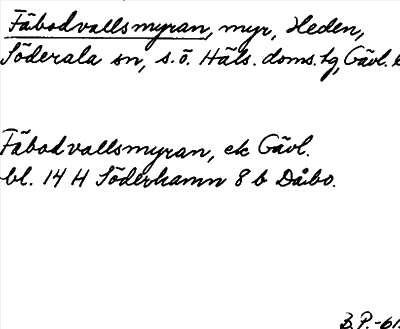 Fäbodvallsmyran, myr, Heden,
Söderala sn, s.ö. Häls. doms.tg, Gävl.
Fäbodvallsmyran, ek Gävl.
bl. 14 H Söderhamn 8 b Dåbo.
B.P.-61.